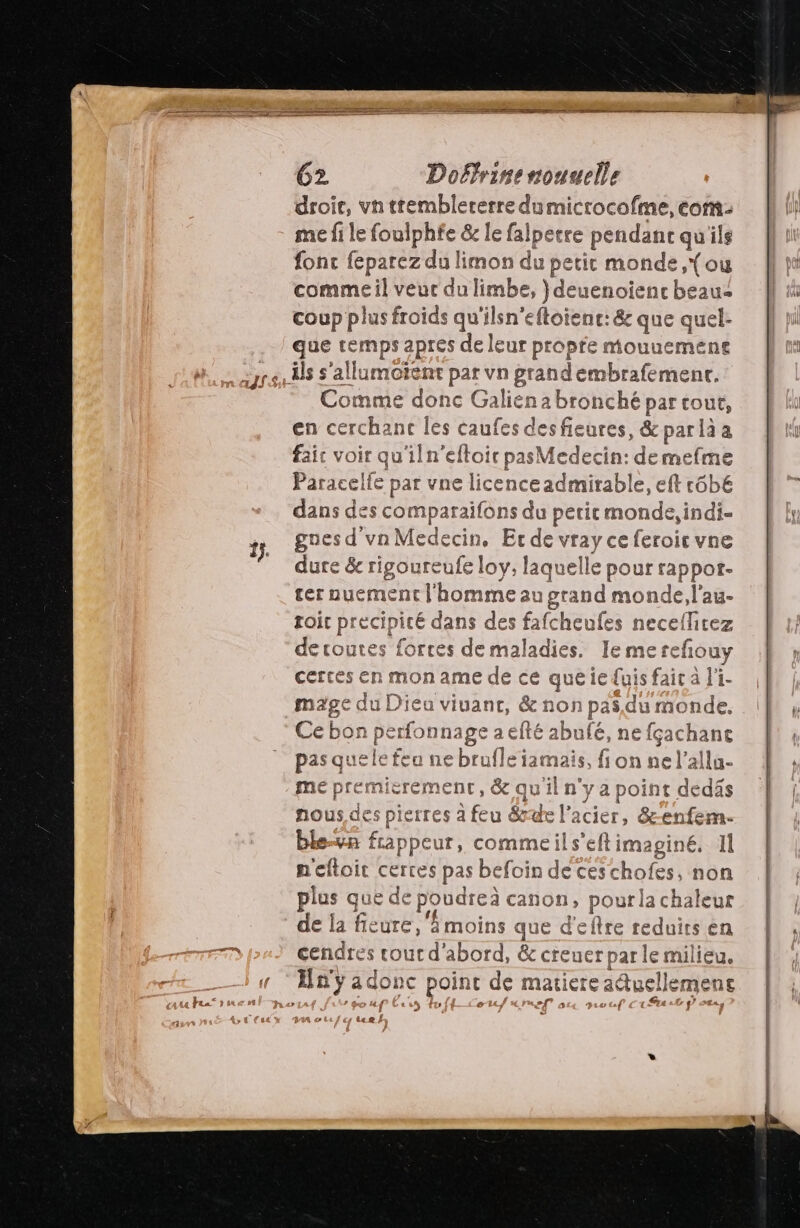 62 Doctrine nouuelle
droit, vn ttembleterre du microcosme, com-
me si le soulphre & le salpetre pendant qu'ils
sont separez du limon du petit monde, (ou
comme il veut du limbe, ) deuenoient beau-
coup plus froids qu'ils n'estoient: & que quel-
que temps apres de leur propre mouuement
ils s'allumoient par vn grand embrasement.
Comme donc Galien a bronché par tout,
en cerchant les causes des fieures, & par là a
fait voir qu'il n'estoit pas Medecin: de mesme
Paracelse par vne licence admirable, est tõbé
dans des comparaisons du petit monde, indi-
gnes d'vn Medecin. Et de vray ce seroit vne
dure & rigoureuse loy, laquelle pour rappor-
ter nuement l'homme au grand monde, l'au-
roit precipité dans des fascheuses necessitez
de toutes sortes de maladies. Ie me resiouy
certes en mon ame de ce que ie suis fait à l'i-
mage du Dieu viuant, & non pas du monde.
Ce bon personnage a esté abusé, ne sçachant
pas que le feu ne brusle iamais, si on ne l'allu-
me premierement, & qu'il n'y a point dedãs
nous des pierres à feu & de l'acier, & ensem-
ble vn frappeur, comme il s'est imaginé. Il
n'estoit certes pas besoin de ces choses, non
plus que de poudre à canon, pour la chaleur
de la fieure, à moins que d'estre reduits en
cendres tout d'abord, & creuer par le milieu.
Il n'y a donc point de matiere actuellement